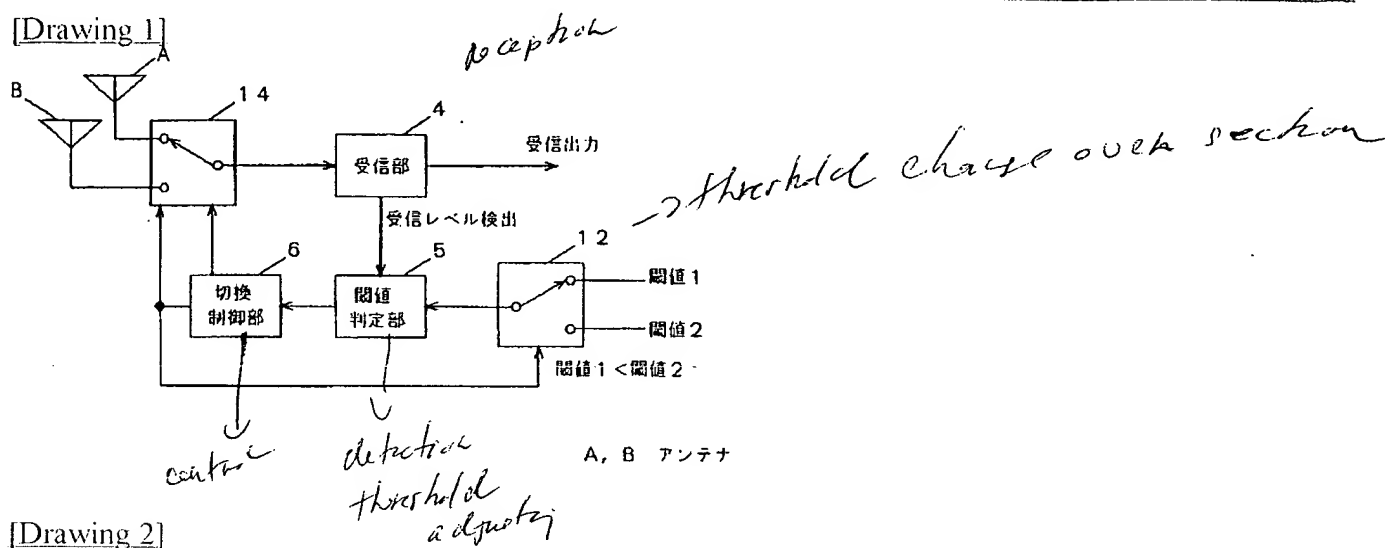 [Drawing 1]
reception
A
B
14
4
受信部
受信出力
受信レベル検出
→ threshold change over section
12
6
切換
制御部
5
閾値
判定部
閾値1
閾値2
閾値1<閾値2
control
detection
threshold
adjusting
A, B アンテナ
[Drawing 2]